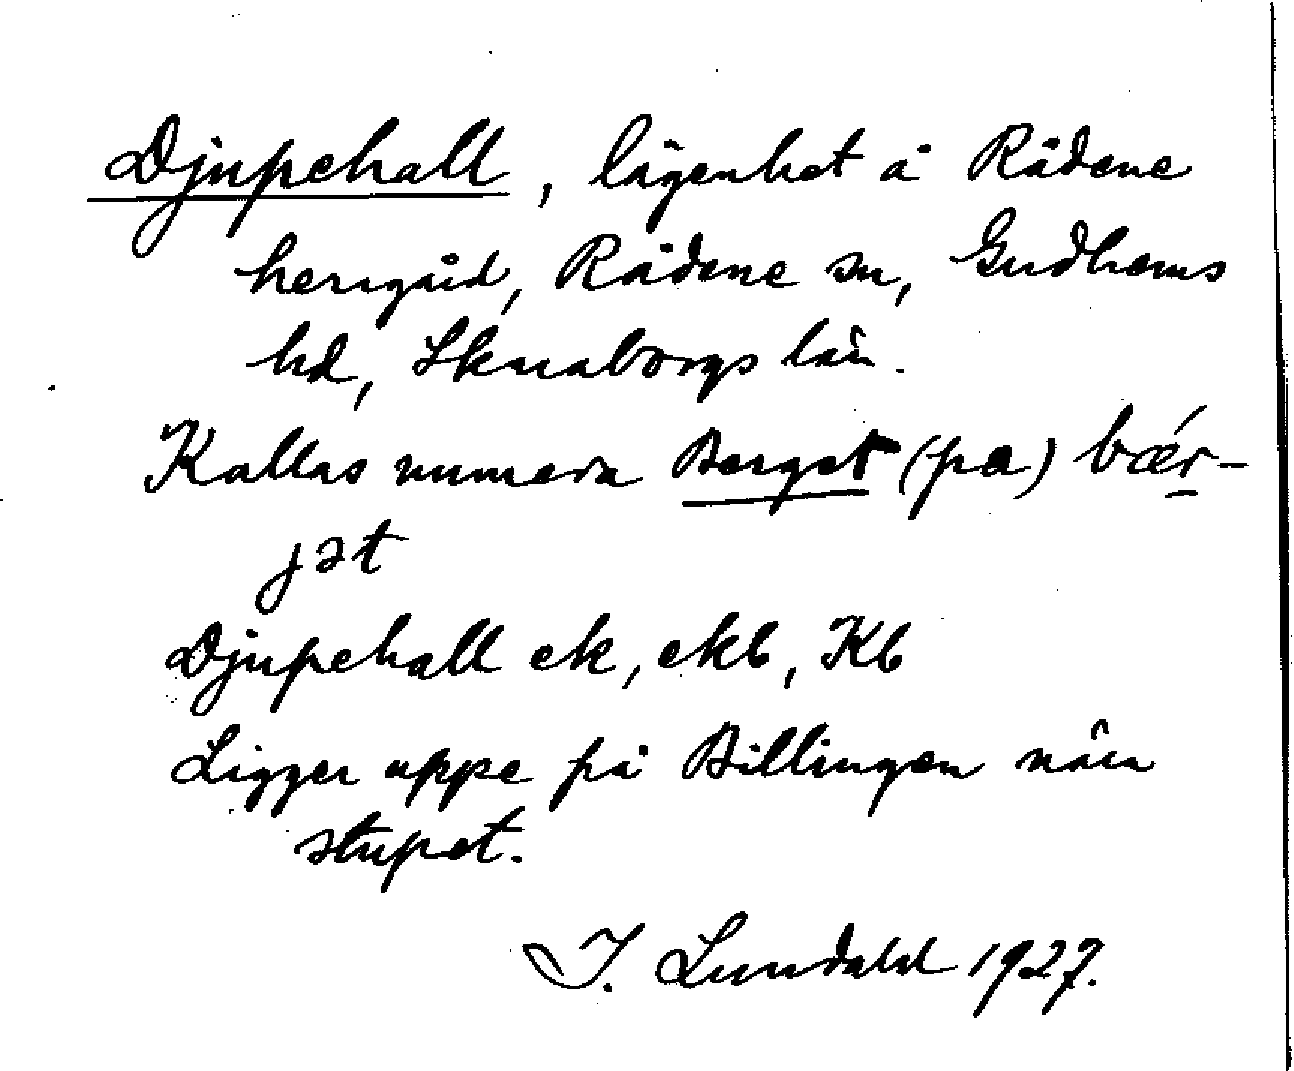 Djupehall, lägenhet å Rådene
herrgård, Rådene sn, Gudhems
hd, Skaraborgs län.
Kallas numera Berget (pa) bǽr-
jət
Djupehall ek, ekb, Kb
Ligger uppe på Billingen nära
stupet.
I. Lundahl 1927.